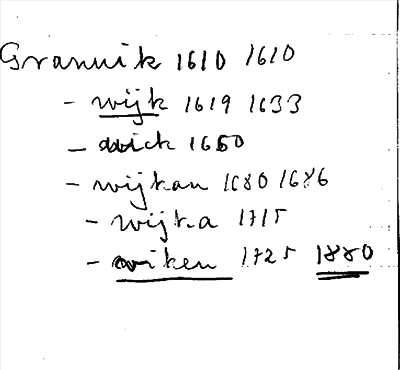 Granvik 1610 1610
- wijk 1619 1633
- wick 1650
- wijkan 1680 1686
- wijka 1715
- wiken 1725 1880